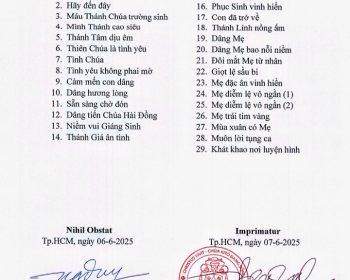 2. Hãy đến đây
3. Máu Thánh Chúa trường sinh
4. Mình Thánh cao siêu
5. Thánh Tâm dịu êm
6. Thiên Chúa là tình yêu
7. Tình Chúa
8. Tình yêu không phai mờ
9. Cảm mến con dâng
10. Dâng hương lòng
11. Sẵn sàng chờ đón
12. Dâng tiến Chúa Hài Đồng
13. Niềm vui Giáng Sinh
14. Thánh Giá ân tình
16. Phục Sinh vinh hiển
17. Con đã trở về
18. Thánh Linh nồng ấm
19. Dâng Mẹ
20. Dâng Mẹ bao nỗi niềm
21. Đôi mắt Mẹ từ nhân
22. Giọt lệ sầu bi
23. Mẹ đặc ân vinh hiển
24. Mẹ diễm lệ vô ngần (1)
25. Mẹ diễm lệ vô ngần (2)
26. Mẹ trái tim vàng
27. Mùa xuân có Mẹ
28. Muôn lời tụng ca
29. Khát khao nơi luyện hình
Nihil Obstat
Tp.HCM, ngày 06-6-2025
Imprimatur
Tp.HCM, ngày 07-6-2025